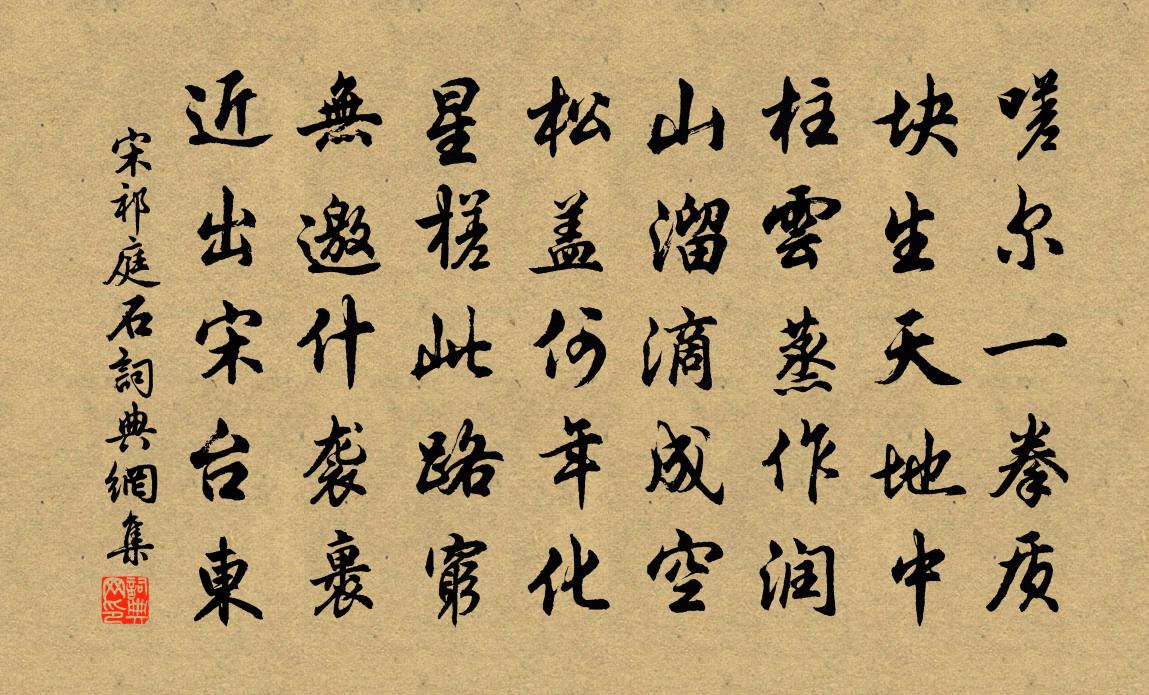 嗟尔一拳质
块生天地中
柱雲蒸作润
山溜滴成空
松盖何年化
星槎此路穷
無邀什袭裹
近出宋台東
宋祁庭石詞典網集
詞典网印